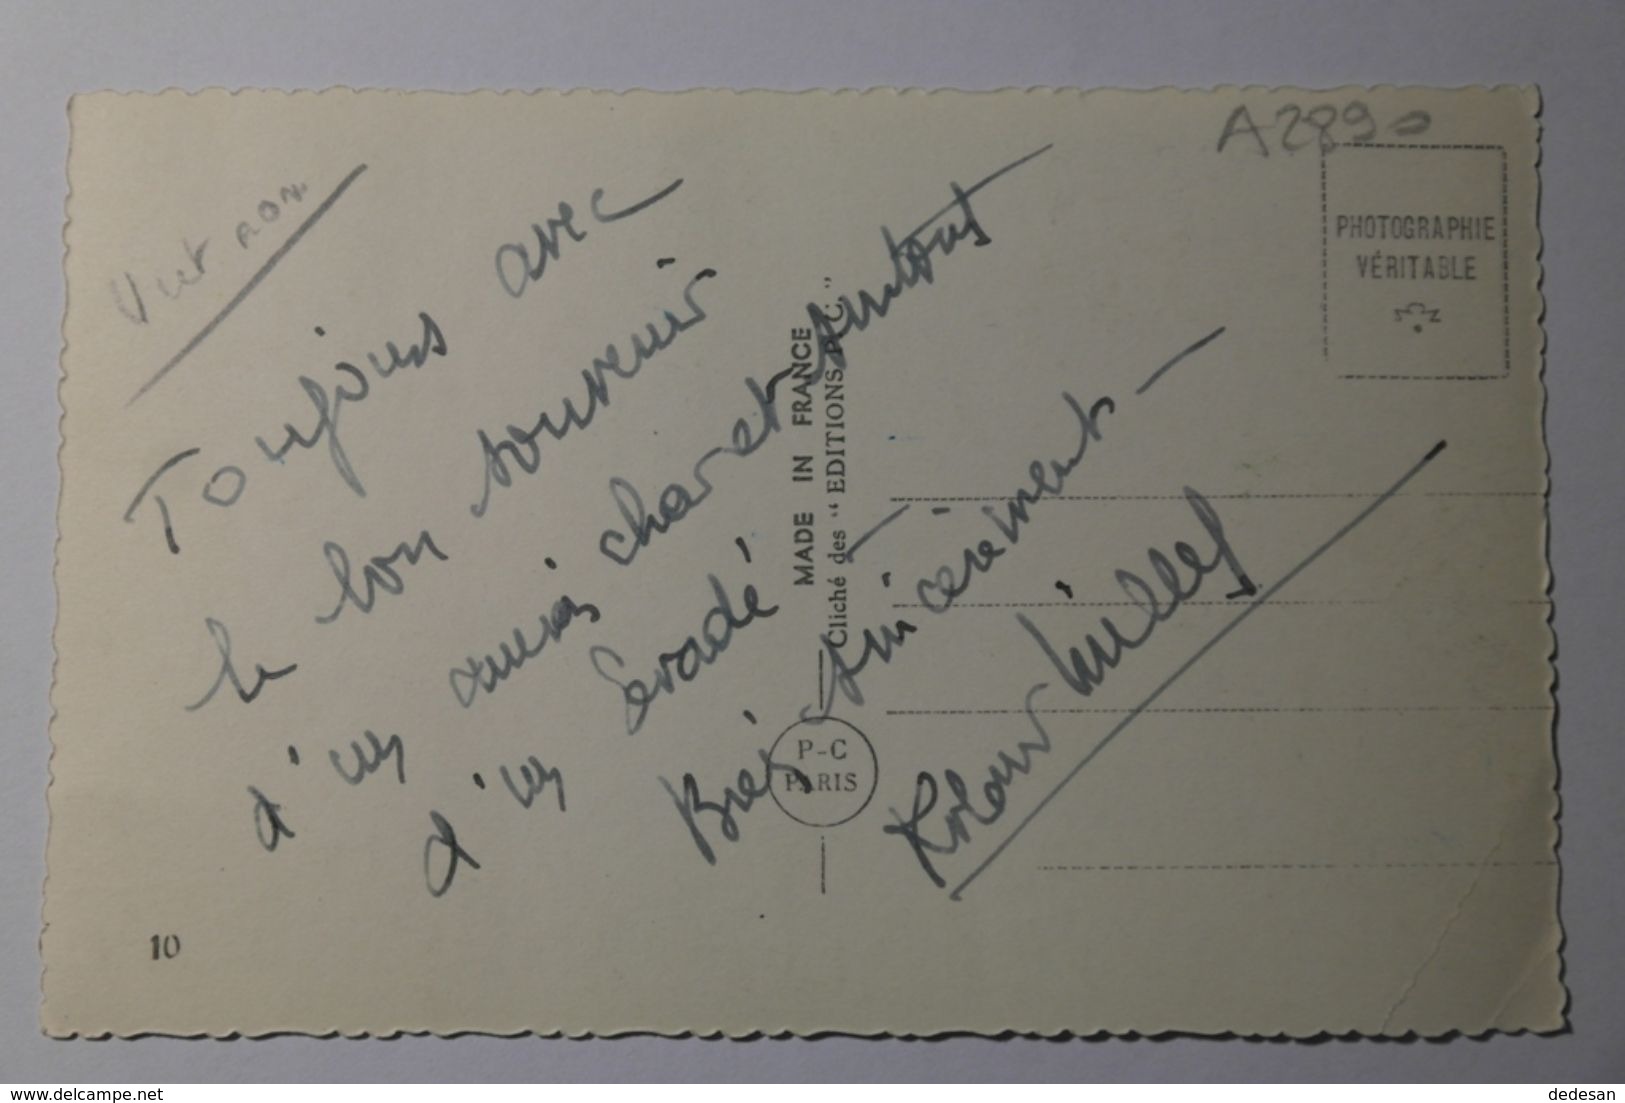 A2890
PHOTOGRAPHIE
VÉRITABLE
Toujours avec
le bon souvenir
d'un amis cher et surtout
d'un Évadé
Bien sincèrement
Roland
MADE IN FRANCE
Cliché des "EDITIONS P. C."
P-C
PARIS
10
delcampe.net
dedesan